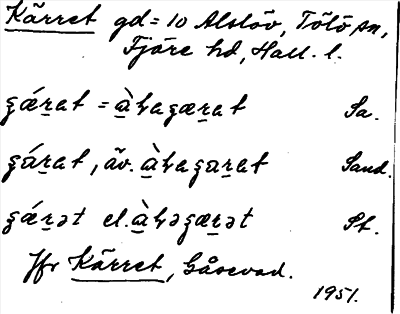 Kärret gd = 10 Alslöv, Tölö sn,
Fjäre hd, Hall. l.
ʂǽṟat = à̱ḣagæṟat Sa.
ʂáṟat, äv. à̱ḣagaṟat Sand.
ʂǽṟət el. à̱ḣəgæṟət St.
Jfr Kärret, Gåsevad.
1951.